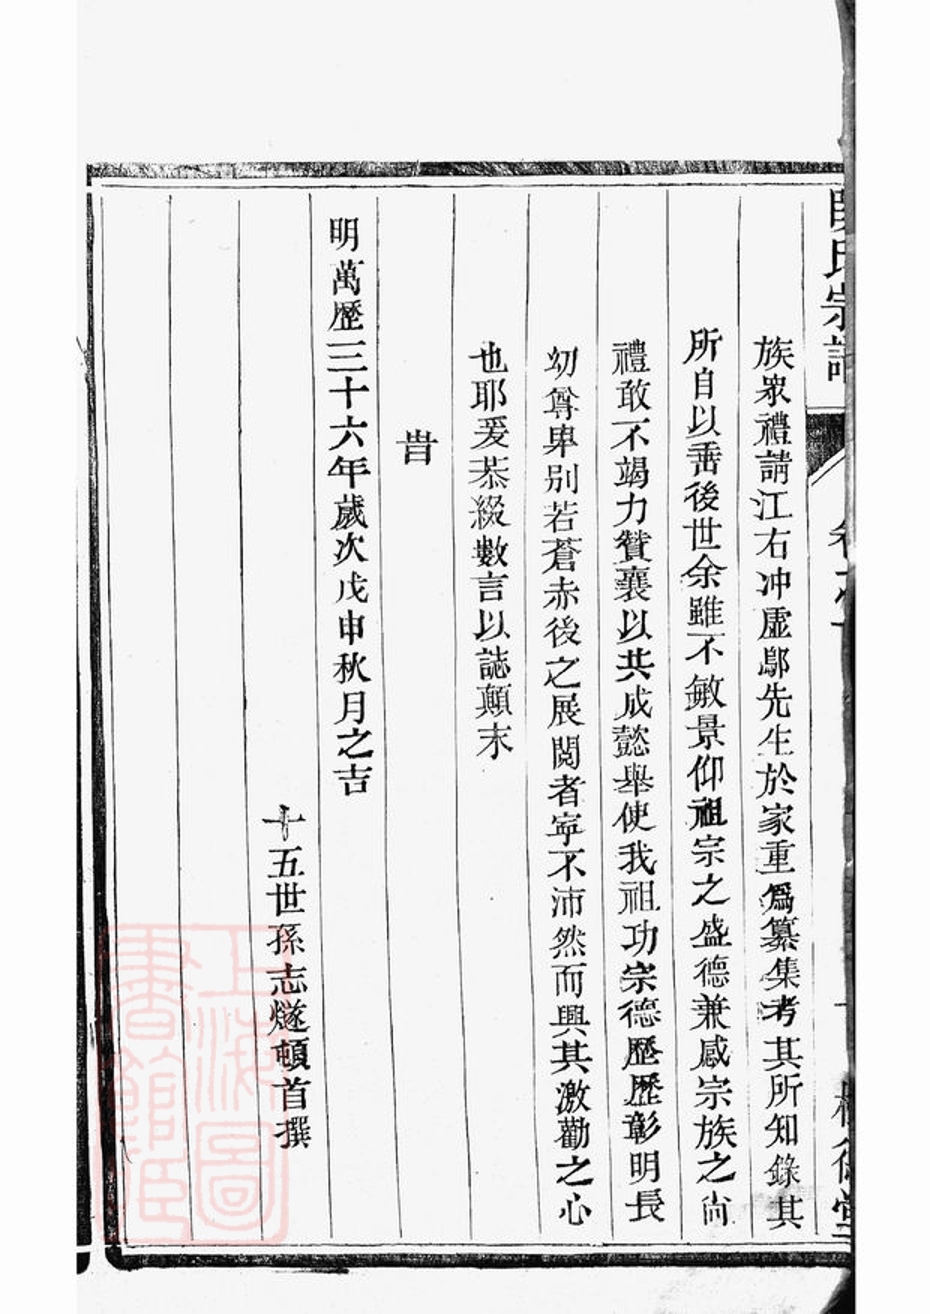 氏宗譜
族衆禮請江右冲虛鄢先生於家重爲纂集考其所知錄其
所自以垂後世余雖不敏景仰祖宗之盛德兼感宗族之尚
禮敢不竭力贊襄以共成懿舉使我祖功宗德歷歷彰明長
幼尊卑別若蒼赤後之展閱者寧不沛然而興其激勸之心
也耶爰恭綴數言以誌顛末
旹
明萬歷三十六年歲次戊申秋月之吉
十五世孫志燧頓首撰
上海圖書館藏